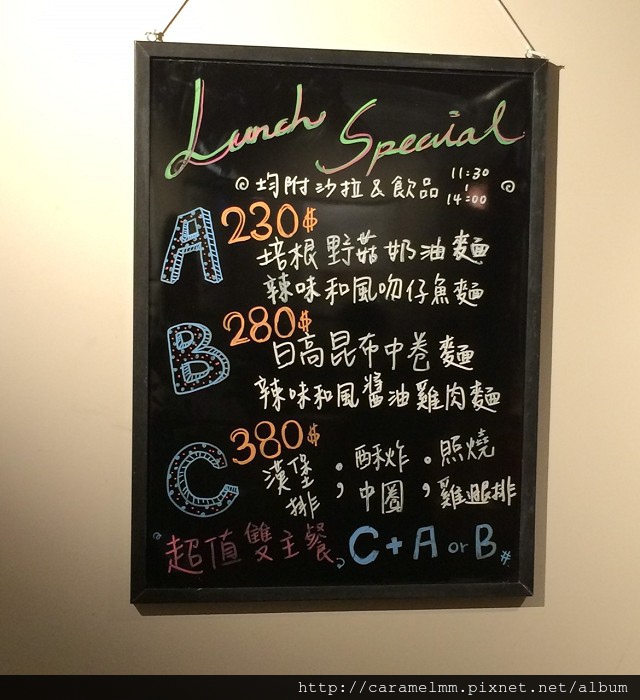 Lunch Special
均附沙拉&飲品 11:30
14:00
A 230$
培根野菇奶油麵
辣味和風吻仔魚麵
B 280$
日高昆布中卷麵
辣味和風醬油雞肉麵
C 380$
漢堡排, 酥炸中圈, 照燒雞腿排
超值雙主餐 C+A or B #
http://caramelmm.pixnet.net/album